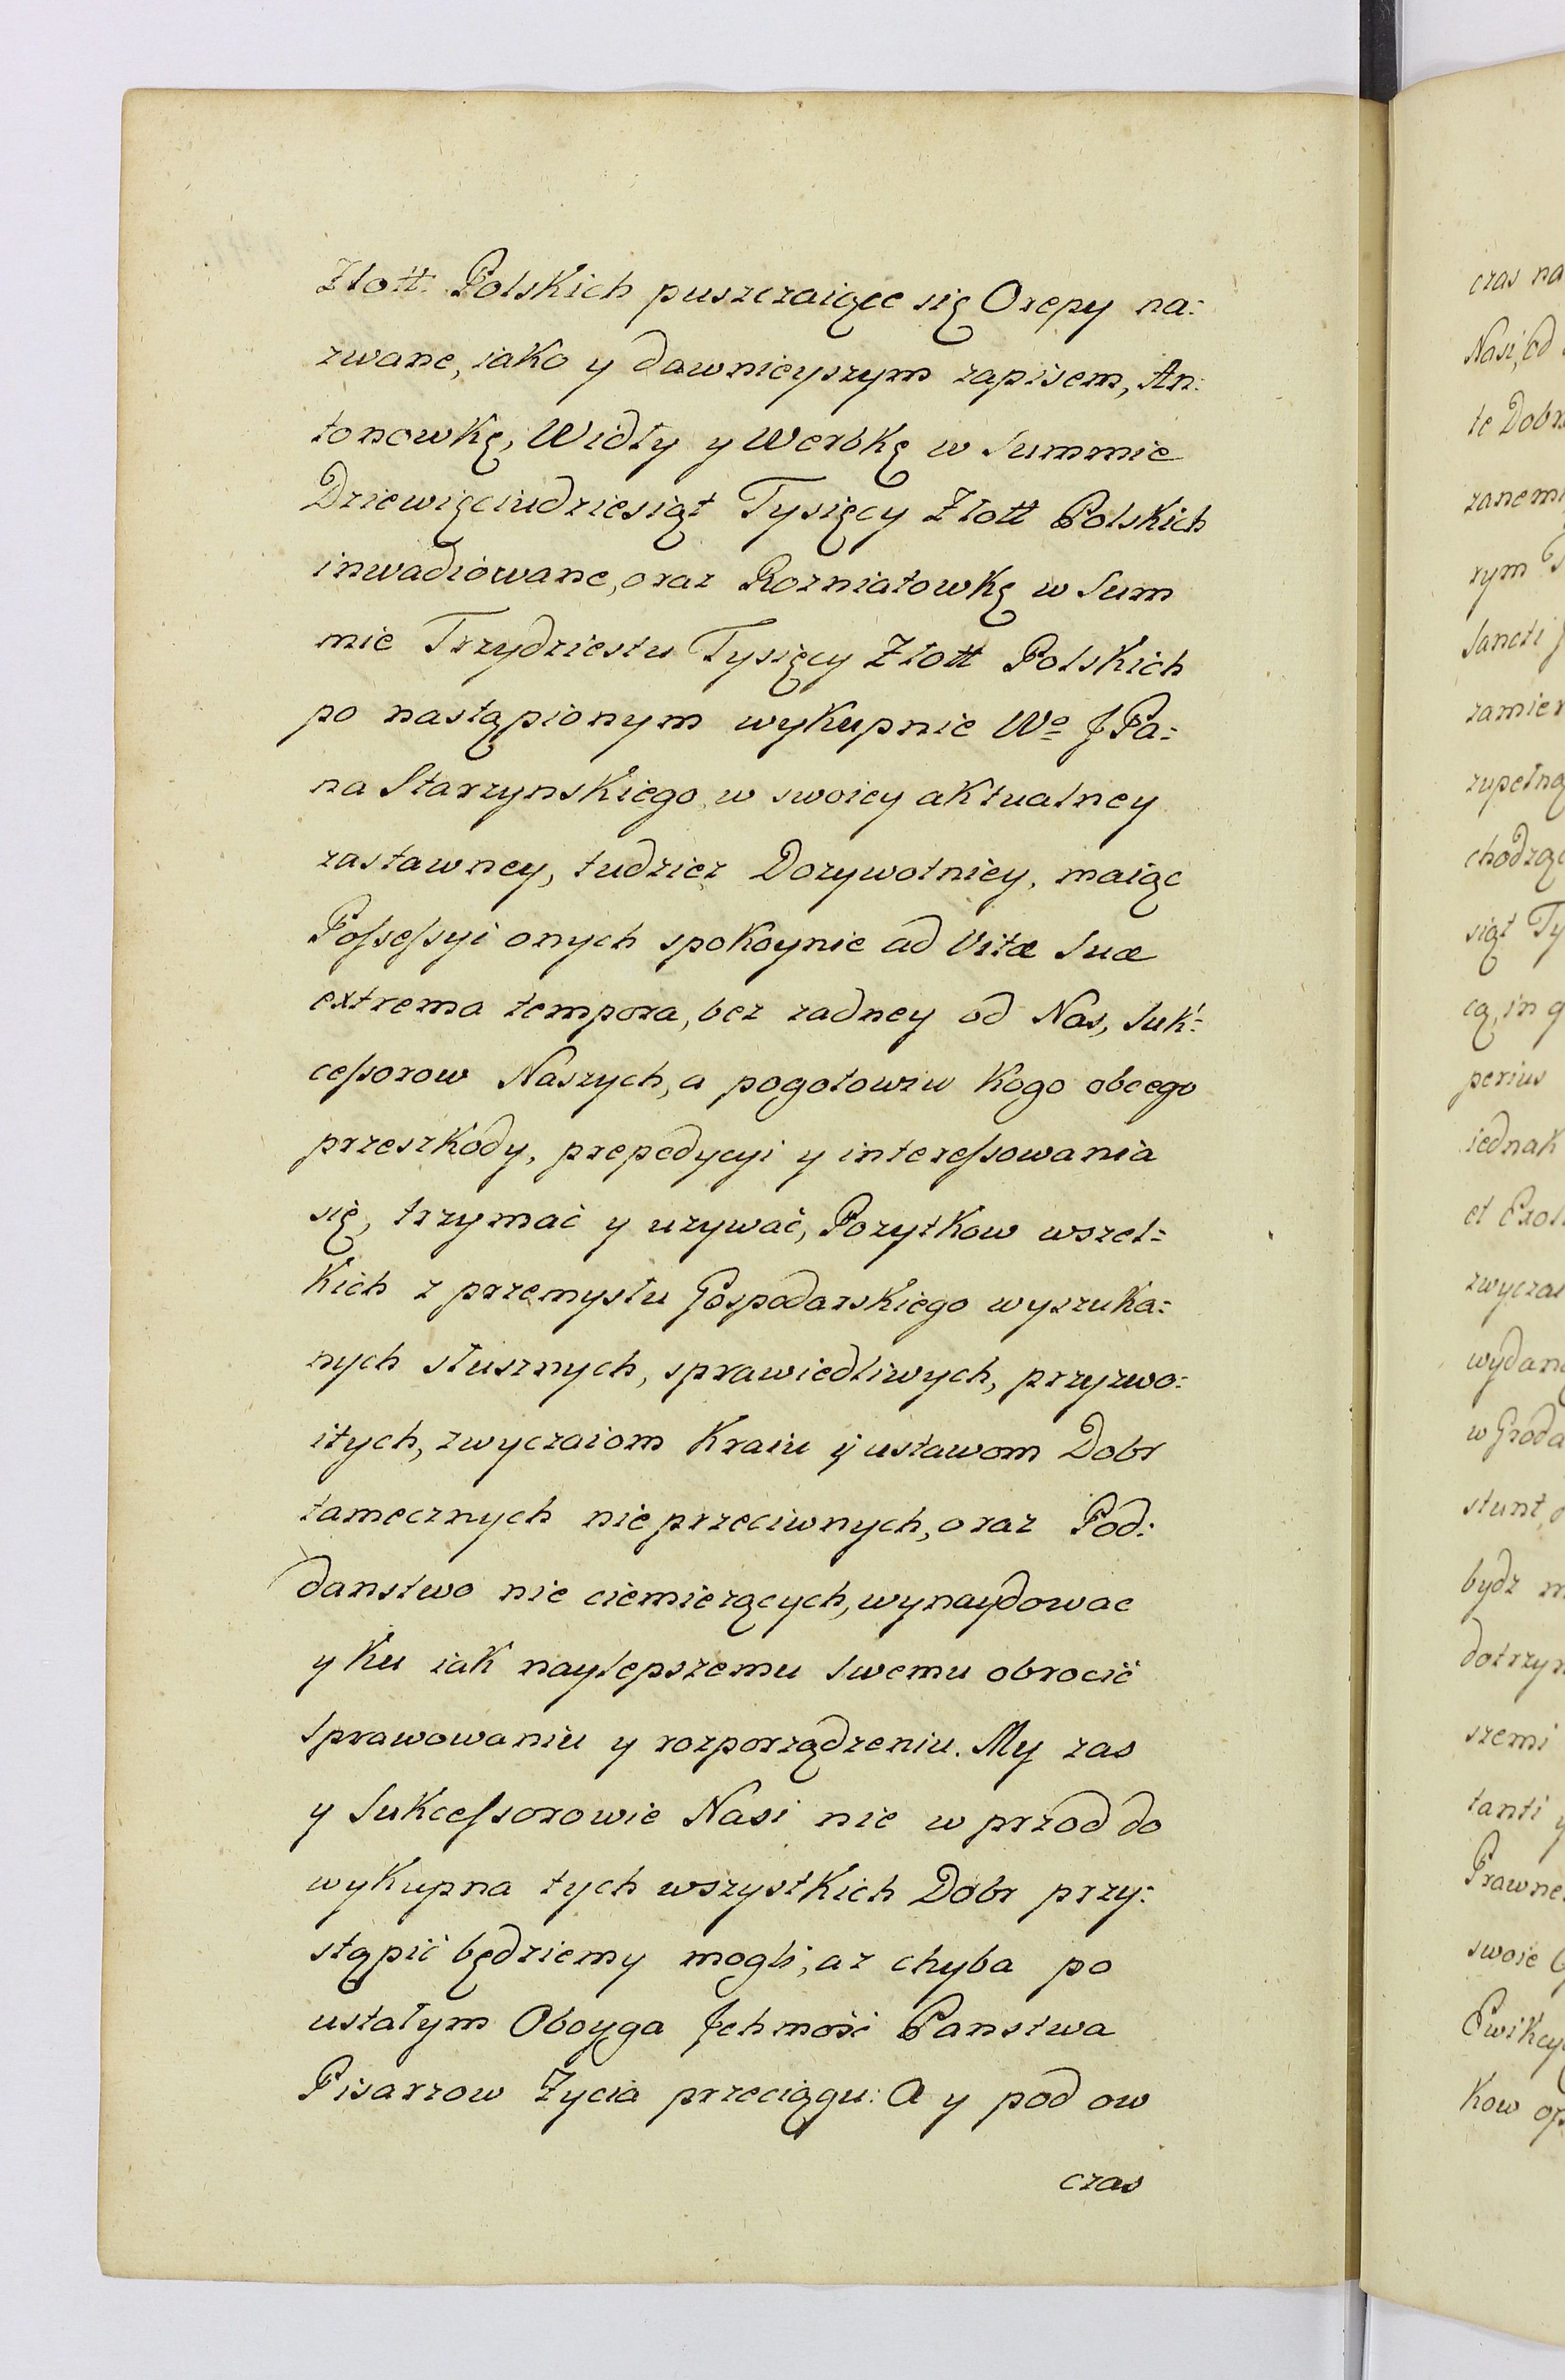 Złott: Polskich puszczaiące się Orepy na:
zwane, iako y dawnieyszym zapisem, An:
tonowkę, Widły y Werbkę w Summie
Dziewięciudziesiąt Tysięcy Złott Polskich
inwadiowane, oraz Rozniatowkę w Sum
mie Trzydziestu Tysięcy Złott Polskich
po nastąpionym wykupnie Wo JPa:
na Starzynskiego w swoiey aktualney
zastawney, tudziez Dozywotniey, maiąc
Poſseſsyi onych spokoynie ad Vitæ Suæ
extrema tempora, bez zadney od Nas, Suk:
ceſsorow Naszych, a pogotowiu kogo obcego
przeszkody, prepedycyi y intereſsowania
się, trzymać y uzywać, Pozytkow wszel:
kich z przemysłu Gospodarskiego wyszuka:
nych słusznych, sprawiedliwych, przyzwo:
itych, zwyczaiom Kraiu ÿ ustawom Dobr
tamecznych nieprzeciwnych, oraz Pod:
danstwo nie ciemiezących, wynaydowac
y ku iak naylepszemu Swemu obrocić
Sprawowaniu y rozporządzeniu. My zas
y Sukceſsorowie Nasi nie w przod do
wykupna tych wszystkich Dobr przy:
stąpić będziemy mogli, az chyba po
ustałym Oboyga Jchmość Panstwa
Pisarzow Zycia przeciągu: A y pod ow
czas
czas na
Nasi, od
te Dobr
zanem
rym T
Sancti J
zamier
zupełną
chodząc
siąt Ty
cą, in q
perius
iednak
et Exol
zwyczai
wydan
w Groda
stunt,
bydz m
dotrzym
szemi
tanti y
Prawne
swoie
Ewikcy
kow